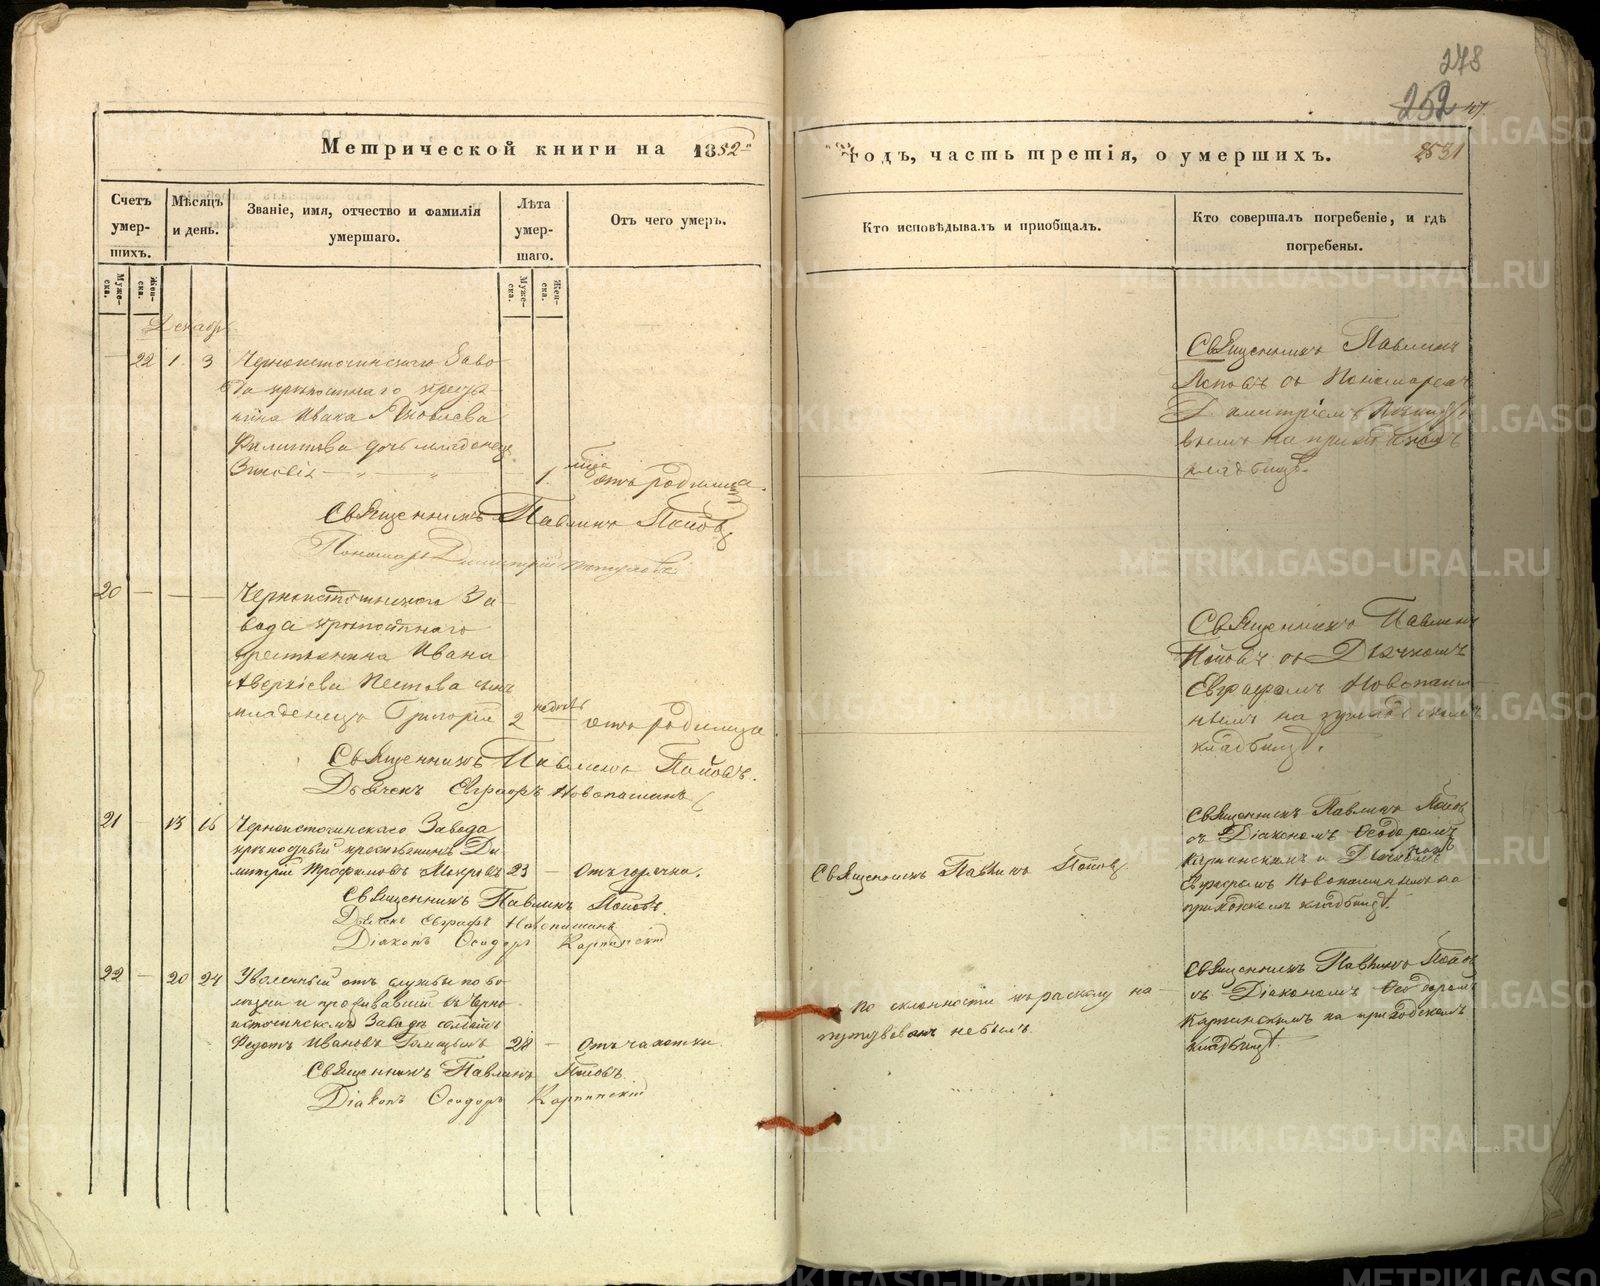 278
252
2531
Метрической книги на 1852й
годъ, часть третія, о умершихъ.
Счетъ умер- шихъ.
Мѣсяцъ и день.
Званіе, имя, отчество и фамилія умершаго.
Лѣта умер- шаго.
Отъ чего умеръ.
Кто исповѣдывалъ и пріобщалъ.
Кто совершалъ погребеніе, и гдѣ погребены.
Муже- ска.
Жен- ска.
Муже- ска.
Жен- ска.
Декабрь
22 1. 3 Черноисточинскаго Заво-
да крѣпостнаго крестья-
нина Ивана Яковлева
Филиппова дочь младенецъ
Зиновія 1. отъ родимца.
Священникъ Павлинъ Поповъ
Пономарь Димитрій
Священникъ Павлинъ
Поповъ съ Пономаремъ
Димитріемъ
на приходскомъ
кладбищѣ.
20 Черноисточинскаго За-
вода крѣпостнаго
крестьянина Ивана
Аверкіева Пестова сынъ
младенецъ Григорій 2 недѣль отъ родимца
Священникъ Павлинъ Поповъ.
Дьячекъ Евграфъ Новопашинъ
Священникъ Павлинъ
Поповъ съ Дьячкомъ
Евграфомъ Новопашин-
нымъ на приходскомъ
кладбищѣ.
21 13 16 Черноисточинскаго Завода
крѣпостный крестьянинъ Ди-
митрій Трофимовъ 23 Отъ горячки.
Священникъ Павлинъ Поповъ.
Дьячекъ Евграфъ Новопашинъ
Діаконъ Ѳеодоръ Карпинскій
Священникъ Павлинъ Поповъ
Священникъ Павлинъ Поповъ
съ Діакономъ Ѳеодоромъ
Карпинскимъ и Дьячкомъ
Евграфомъ Новопашинымъ на
приходскомъ кладбищѣ.
22 20 24 Уволенный отъ службы по бо-
лѣзни и проживавшій въ Черно-
источинскомъ Заводѣ
Федотъ Ивановъ 28 Отъ чахотки
Священникъ Павлинъ Поповъ.
Діаконъ Ѳеодоръ Карпинскій
По склонности къ расколу на-
путствованъ не былъ.
Священникъ Павлинъ Поповъ
съ Діакономъ Ѳеодоромъ
Карпинскимъ на приходскомъ
кладбищѣ.
METRIKI.GASO-URAL.RU